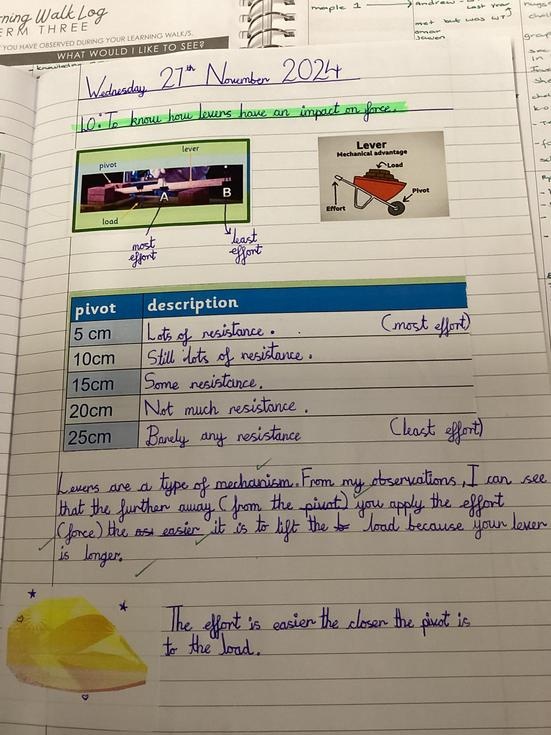 ning Walk Log
ERM THREE
YOU HAVE OBSERVED DURING YOUR LEARNING WALK/S.
WHAT WOULD I LIKE TO SEE?
maple 1
Andrew
last year
met but was
Wednesday 27th November 2024
LO: To know how levers have an impact on force.
lever
pivot
A
B
load
most effort
least effort
Lever
Mechanical advantage
Load
Effort
Pivot
pivot description
5 cm Lots of resistance. (most effort)
10cm Still lots of resistance.
15cm Some resistance.
20cm Not much resistance.
25cm Barely any resistance (least effort)
Levers are a type of mechanism. From my observations, I can see
that the further away (from the pivot) you apply the effort
(force) the easier it is to lift the load because your lever
is longer.
The effort is easier the closer the pivot is
to the load.